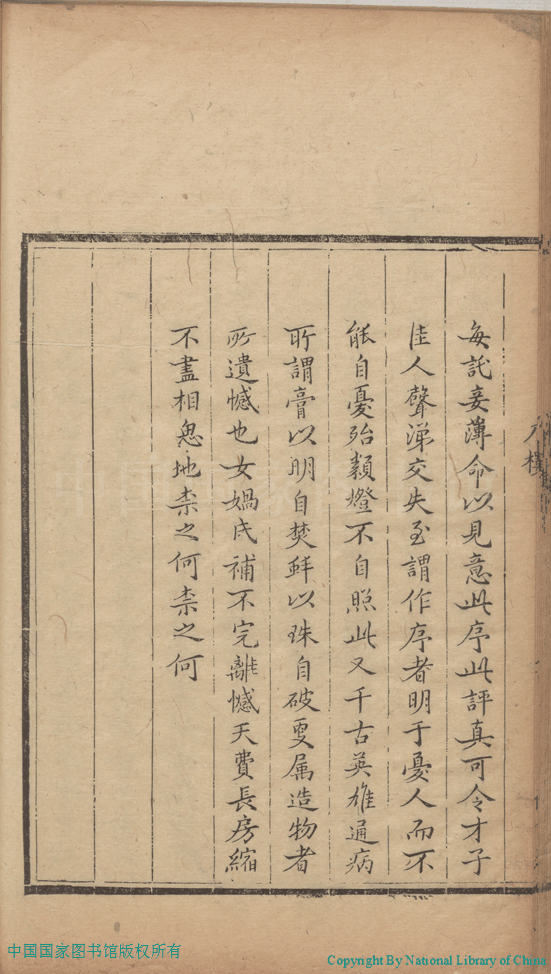 每託妾薄命以見意此序此評真可令才子
佳人聲涕交失至謂作序者明于憂人而不
能自憂殆類燈不自照此又千古英雄通病
所謂膏以明自焚蚌以珠自破要属造物者
所遺憾也女媧氏補不完離憾天費長房縮
不盡相思地柰之何柰之何
中国国家图书馆版权所有
Copyright By National Library of China